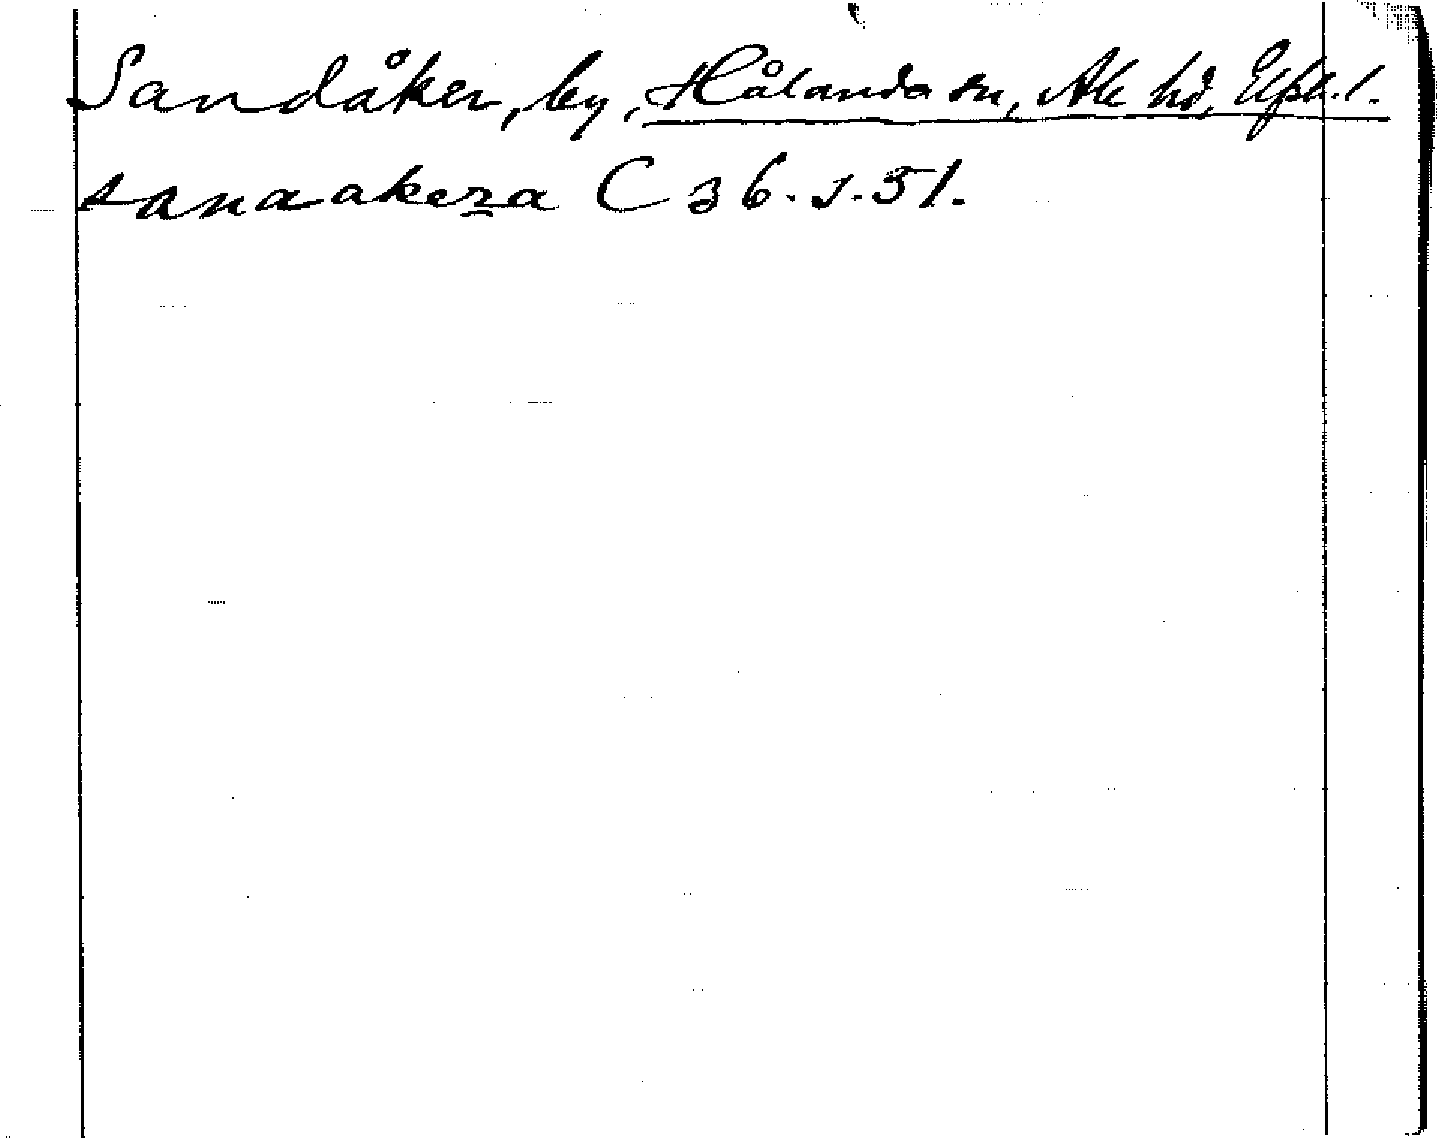 Sandåker, by, Hålanda sn, Ale hd, Elfsb. l.
sanaakera C 36. s. 51.